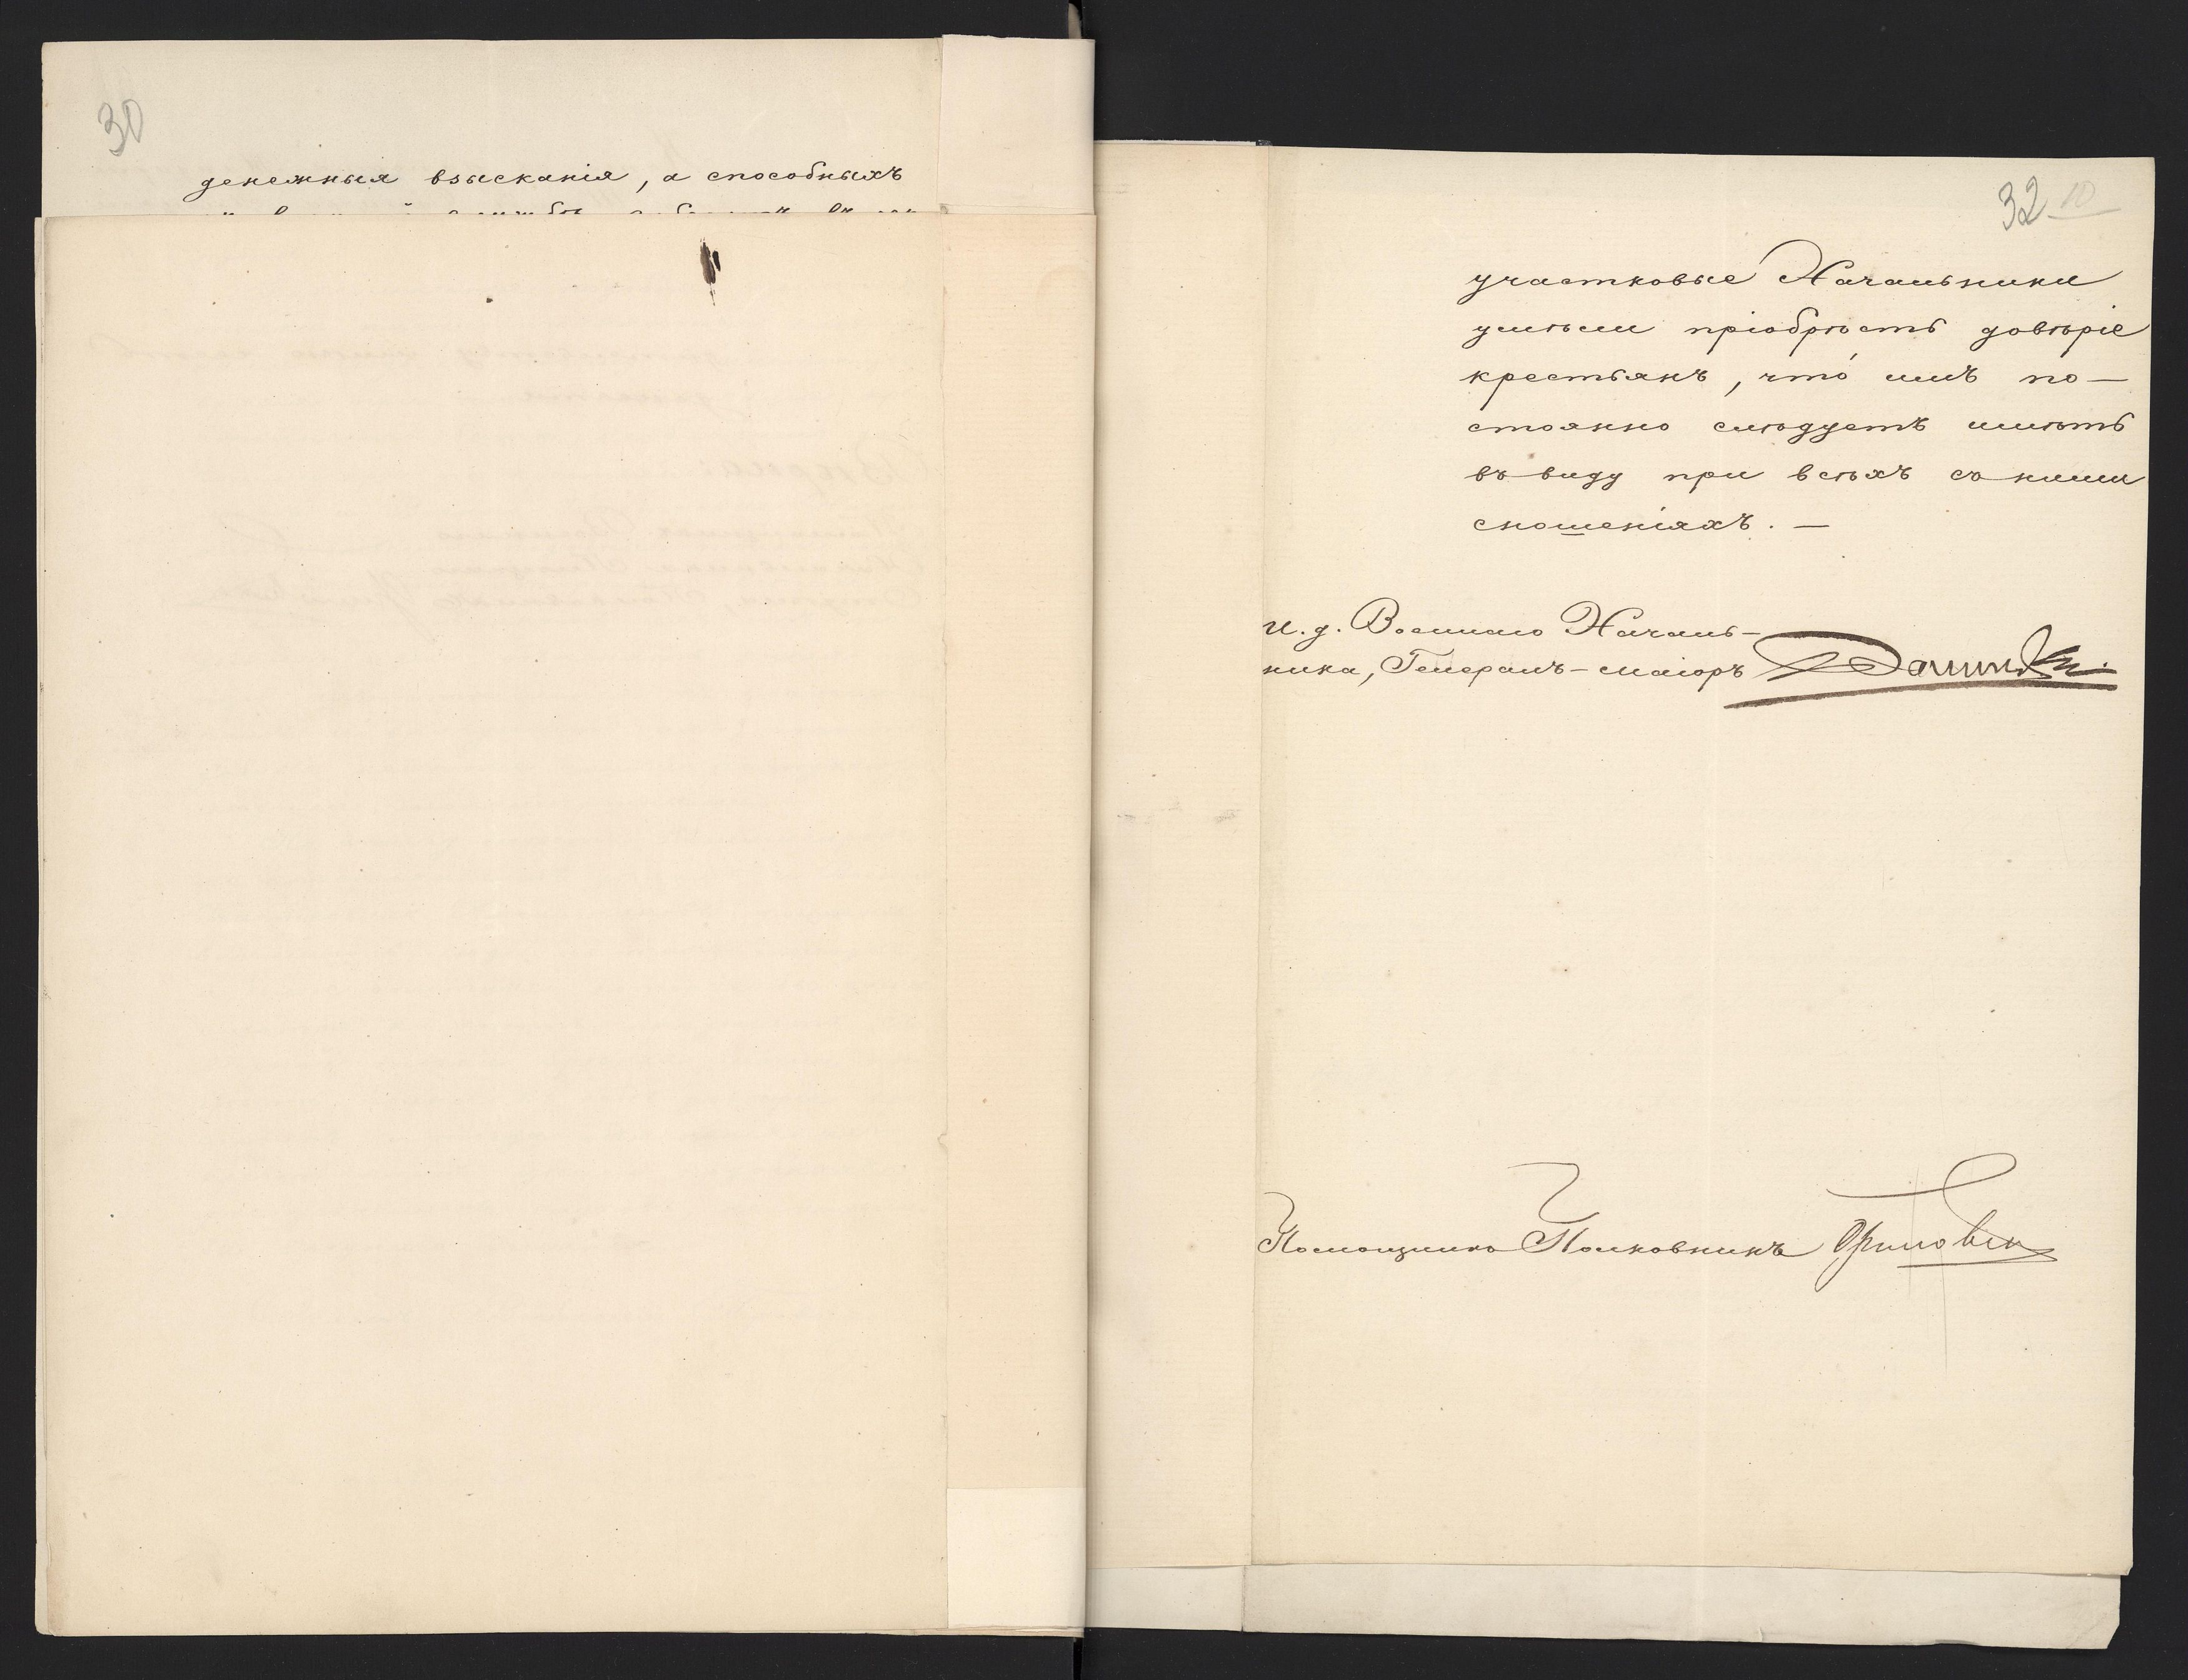 30
денежныя взысканія, а способныхъ
32 10
участковые Начальники
умѣли пріобрѣсть довѣріе
крестьянъ, что́ имъ по—
стоянно слѣдуетъ имѣть
въ виду при всѣхъ съ ними
сношеніяхъ. —
И. д. Военнаго Началь-
ника, Генералъ-маіоръ
Помощникъ Полковникъ